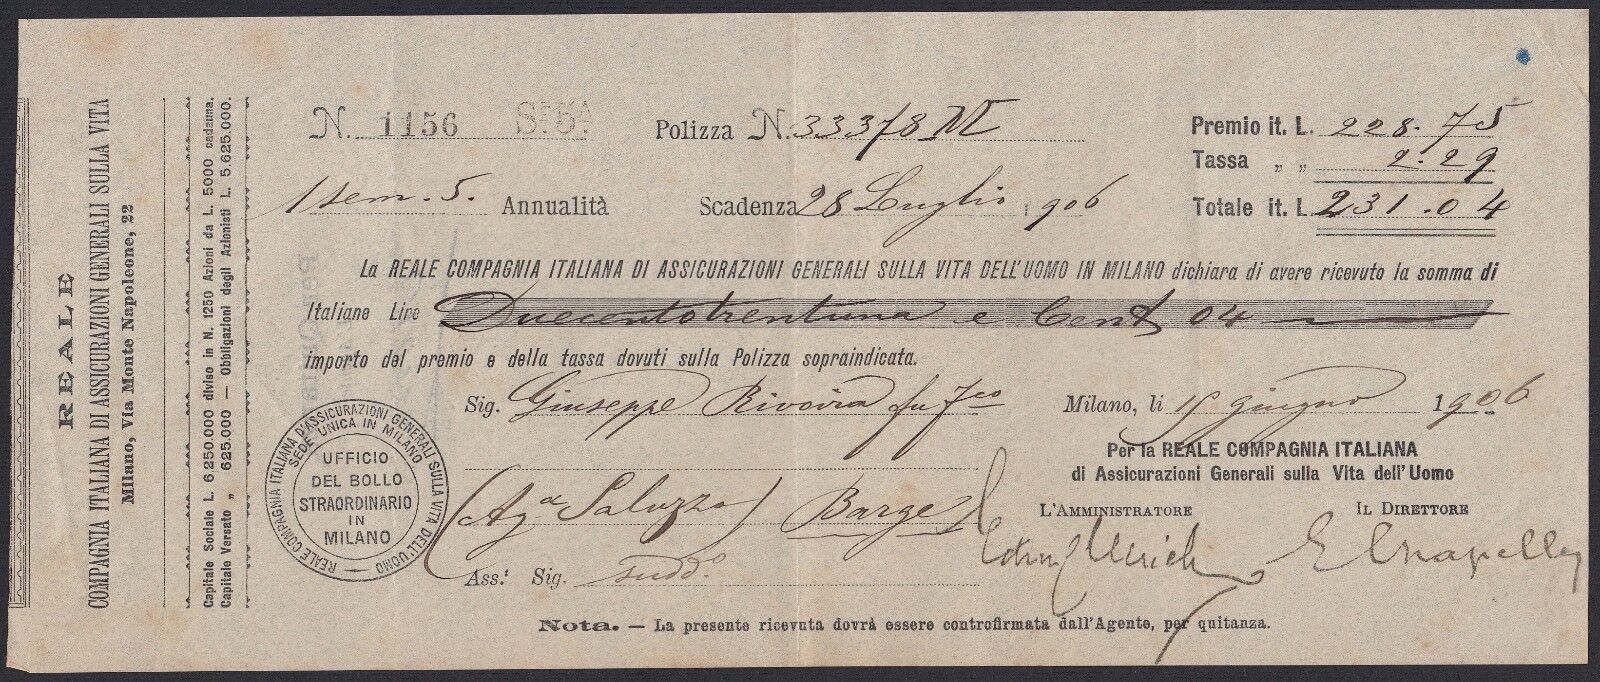 REALE
COMPAGNIA ITALIANA DI ASSICURAZIONI GENERALI SULLA VITA
Milano, Via Monte Napoleone, 22
Capitale Sociale L. 6.250.000 diviso in N. 1250 Azioni da L. 5000 cadauna.
Capitale Versato „ 625.000 — Obbligazioni degli Azionisti L. 5.625.000.
N. 1156 Sr. 5A Polizza N. 33378 M Premio it. L. 228.75
Tassa „ „ 2.29
1 sem. 5. Annualità Scadenza 28 Luglio 1906 Totale it. L. 231.04
La REALE COMPAGNIA ITALIANA DI ASSICURAZIONI GENERALI SULLA VITA DELL'UOMO IN MILANO dichiara di avere ricevuto la somma di
Italiane Lire Duecentotrentuna e Cent 04
importo del premio e della tassa dovuti sulla Polizza sopraindicata.
Sig. Giuseppe Rivoira fu Fco Milano, li giugno 1906
Per la REALE COMPAGNIA ITALIANA
di Assicurazioni Generali sulla Vita dell'Uomo
(Aga Saluzzo) Barge L'AMMINISTRATORE IL DIRETTORE
Ass.t Sig. sudd.o
REALE COMPAGNIA ITALIANA D'ASSICURAZIONI GENERALI SULLA VITA DELL'UOMO
SEDE UNICA IN MILANO
UFFICIO
DEL BOLLO
STRAORDINARIO
IN
MILANO
Nota. — La presente ricevuta dovrà essere controfirmata dall'Agente, per quitanza.